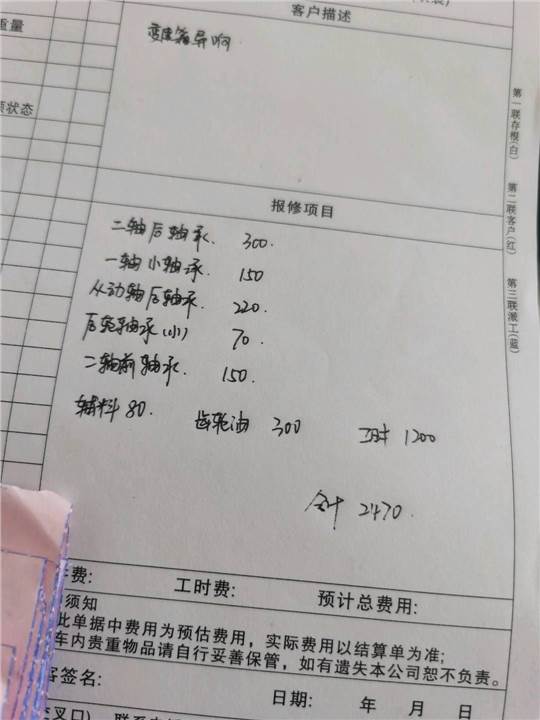 客户描述
重量
变速箱异响
状态
报修项目
二轴后轴承. 300.
一轴小轴承. 150
从动轴后轴承. 220.
后轮轴承(小) 70.
二轴前轴承. 150.
辅料 80. 齿轮油 300 工时 1200
合计 2470.
费: 工时费: 预计总费用:
须知
此单据中费用为预估费用，实际费用以结算单为准；
车内贵重物品请自行妥善保管，如有遗失本公司恕不负责。
客签名:
日期: 年 月 日
交叉口)
第一联存根(白)
第二联客户(红)
第三联派工(蓝)